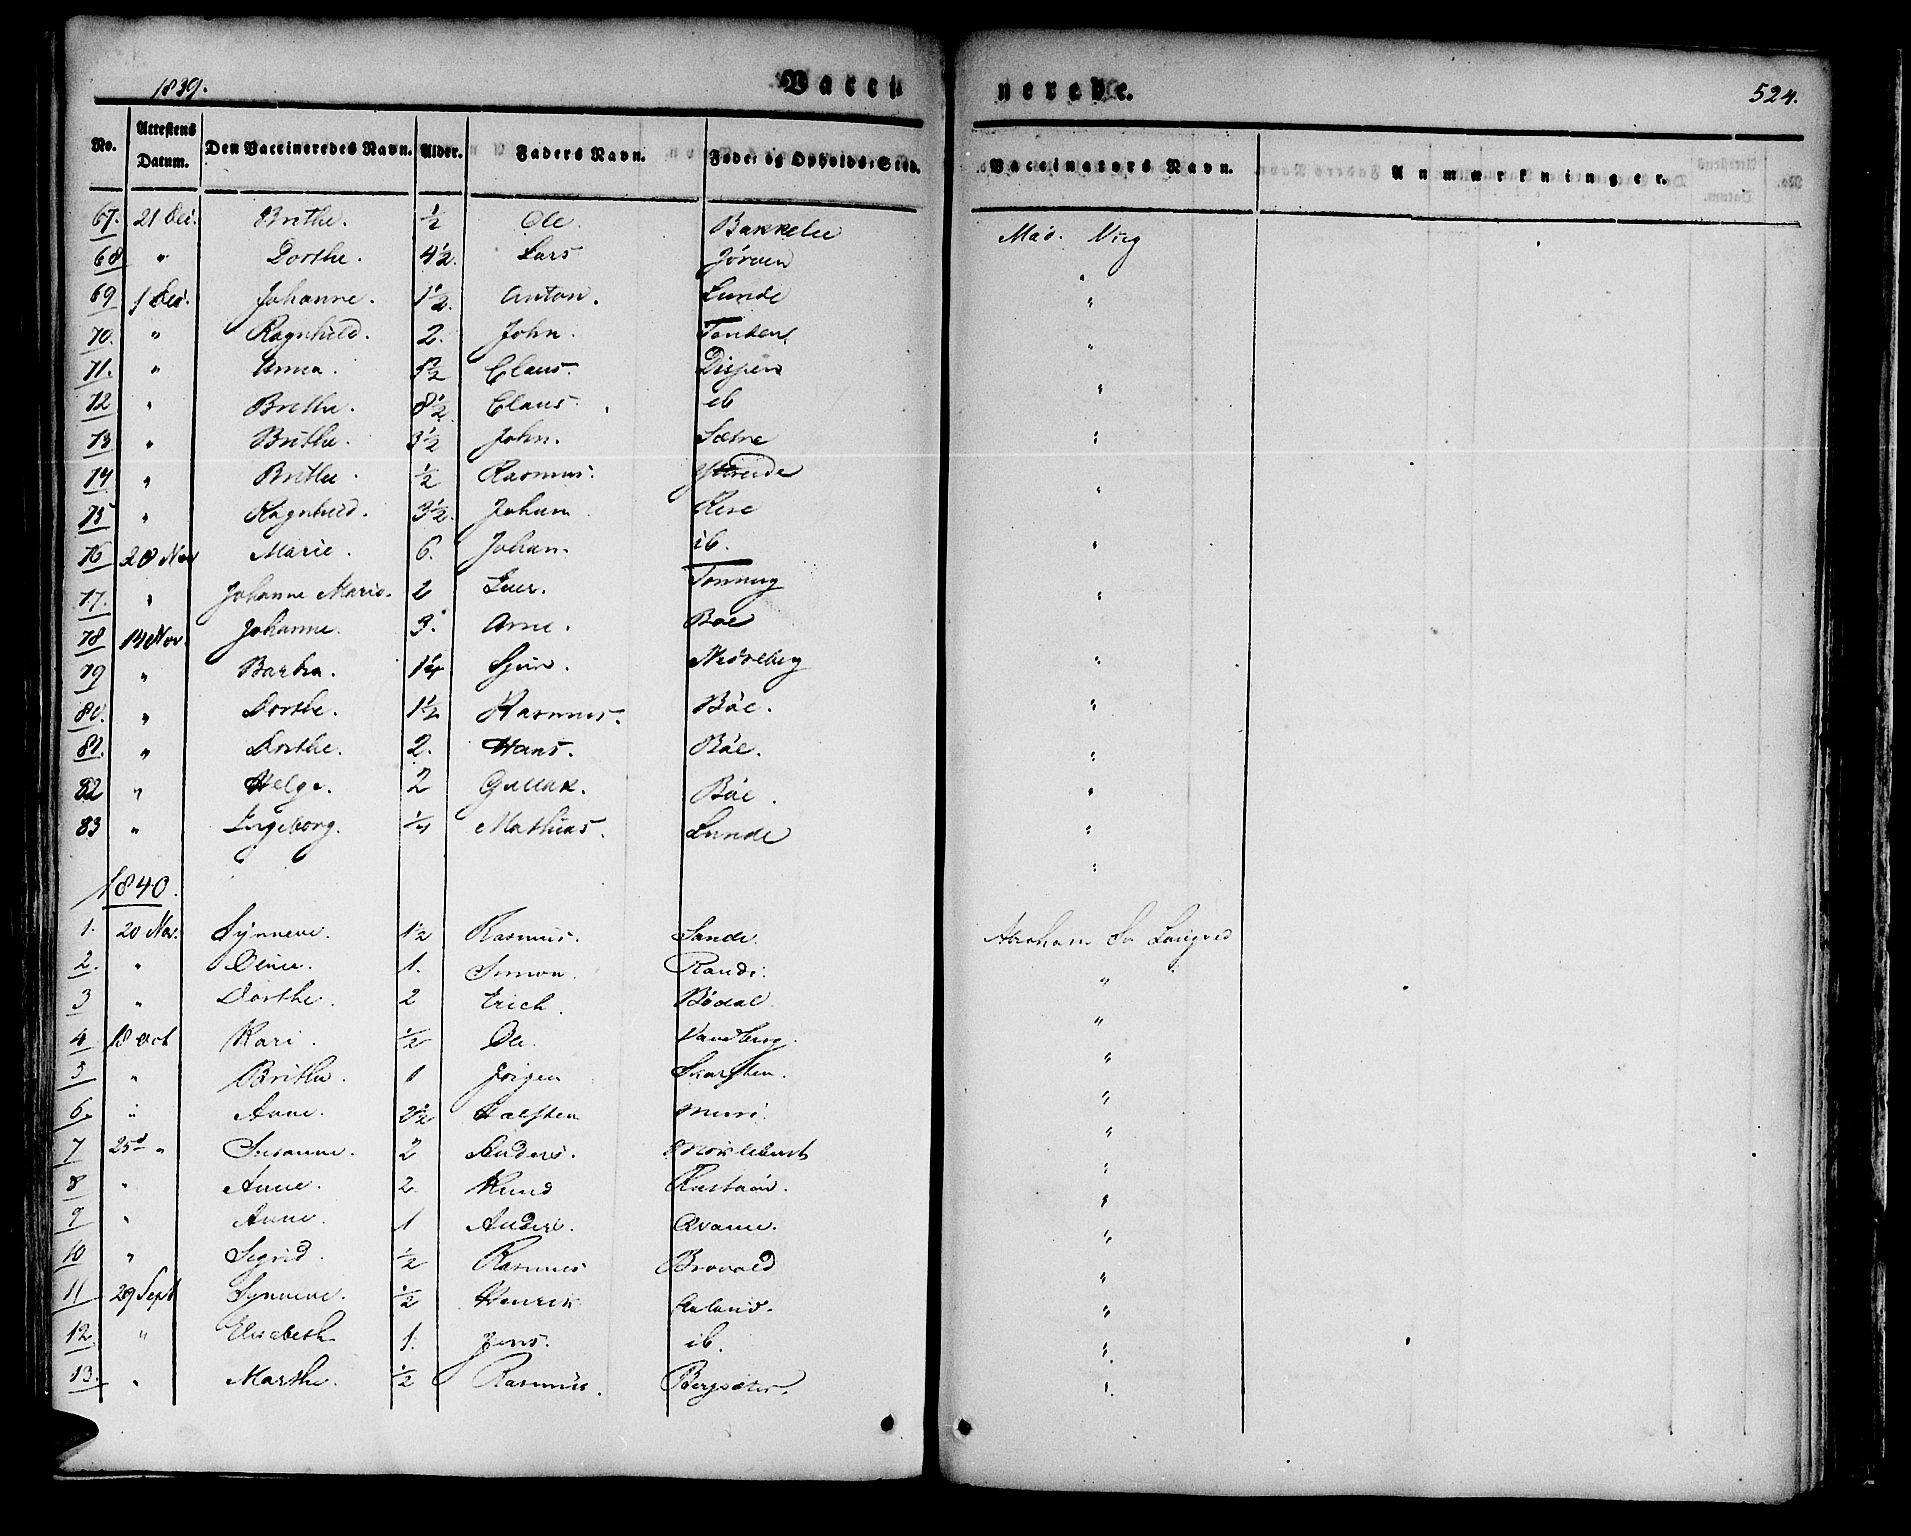 1839. Vaccinerede. 524.
No. Attestens Datum. Den Vaccineredes Navn. Alder. Faders Navn. Føde- og Opholds-Sted. Vaccinators Navn. Anmærkninger.
67. 21 Dec. Brithe. ½ Ole Bakkelie Mad. Wiig
68 " Dorthe. 4½. Lars "
69 1 Dec. Johanne. 1½. Anton. Lunde "
70. " Ragnhild. 2. John. Tenden "
71. " Anna. 5½ Claus. "
72 " Brithe. 8½ Claus. ib "
73 " Brithe. 3½ John. Sætre "
74 " Brithe ½ Rasmus. "
75 " Ragnhild. 3½. Johan "
76 28 Nov Marie. 6. Johan. ib. "
77. " Johanne Marie. 2 Tonning "
78 14 Nov. Johanne. 3. Arne. Boe "
79 " Barbra. 1¼ Sjur. "
80. " Dorthe. 1½ Rasmus. Böe. "
81. " Dorthe. 2. Hans. Böe. "
82 " Helge. 2 Gullak. Böe. "
83 " Ingeborg. ¼ Mathias. Lunde "
1840.
1. 20 Nov. Synneve. 1½ Rasmus. Sande. Abraham
2. " Oline. 1. Simon. Rande. "
3 " Dorthe. 2 Erich. Bödal. "
4 18 Oct Kari. ½ Ole. Vandberg. "
5 " Brithe. 1 Jörgen Skarsten. "
6. " Anne. 2½ Halsten Muri. "
7 25d " Susanne. 2 Anders. "
8 " Anne. 2. Knud "
9 " Anne. 1 Anders. Qvame. "
10 " Sigrid. ½ Rasmus Brovold "
11 29 Sept Synneve. ½ Henrik Aaland. "
12. " Elisabeth 1. Jens. ib. "
13. " Marthe. ½ Rasmus. Bergsæter. "